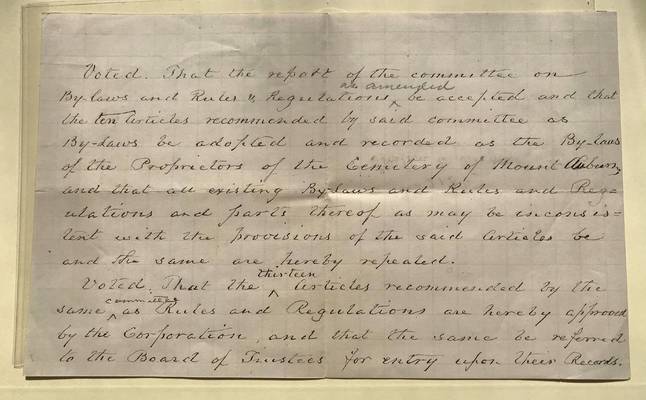 Voted. That the report of the committee on
By-laws and Rules & Regulations as amended be accepted and that
the ten Articles recommended by said committee as
By-Laws be adopted and recorded as the By-laws
of the Proprietors of the Cemetery of Mount Auburn,
and that all existing By-laws and Rules and Reg=
ulations and parts thereof as may be inconsis=
tent with the provisions of the said Articles be
and the same are hereby repealed.
Voted. That the thirteen Articles recommended by the
same committee as Rules and Regulations are hereby approved
by the Corporation, and that the same be referred
to the Board of Trustees for entry upon their Records.